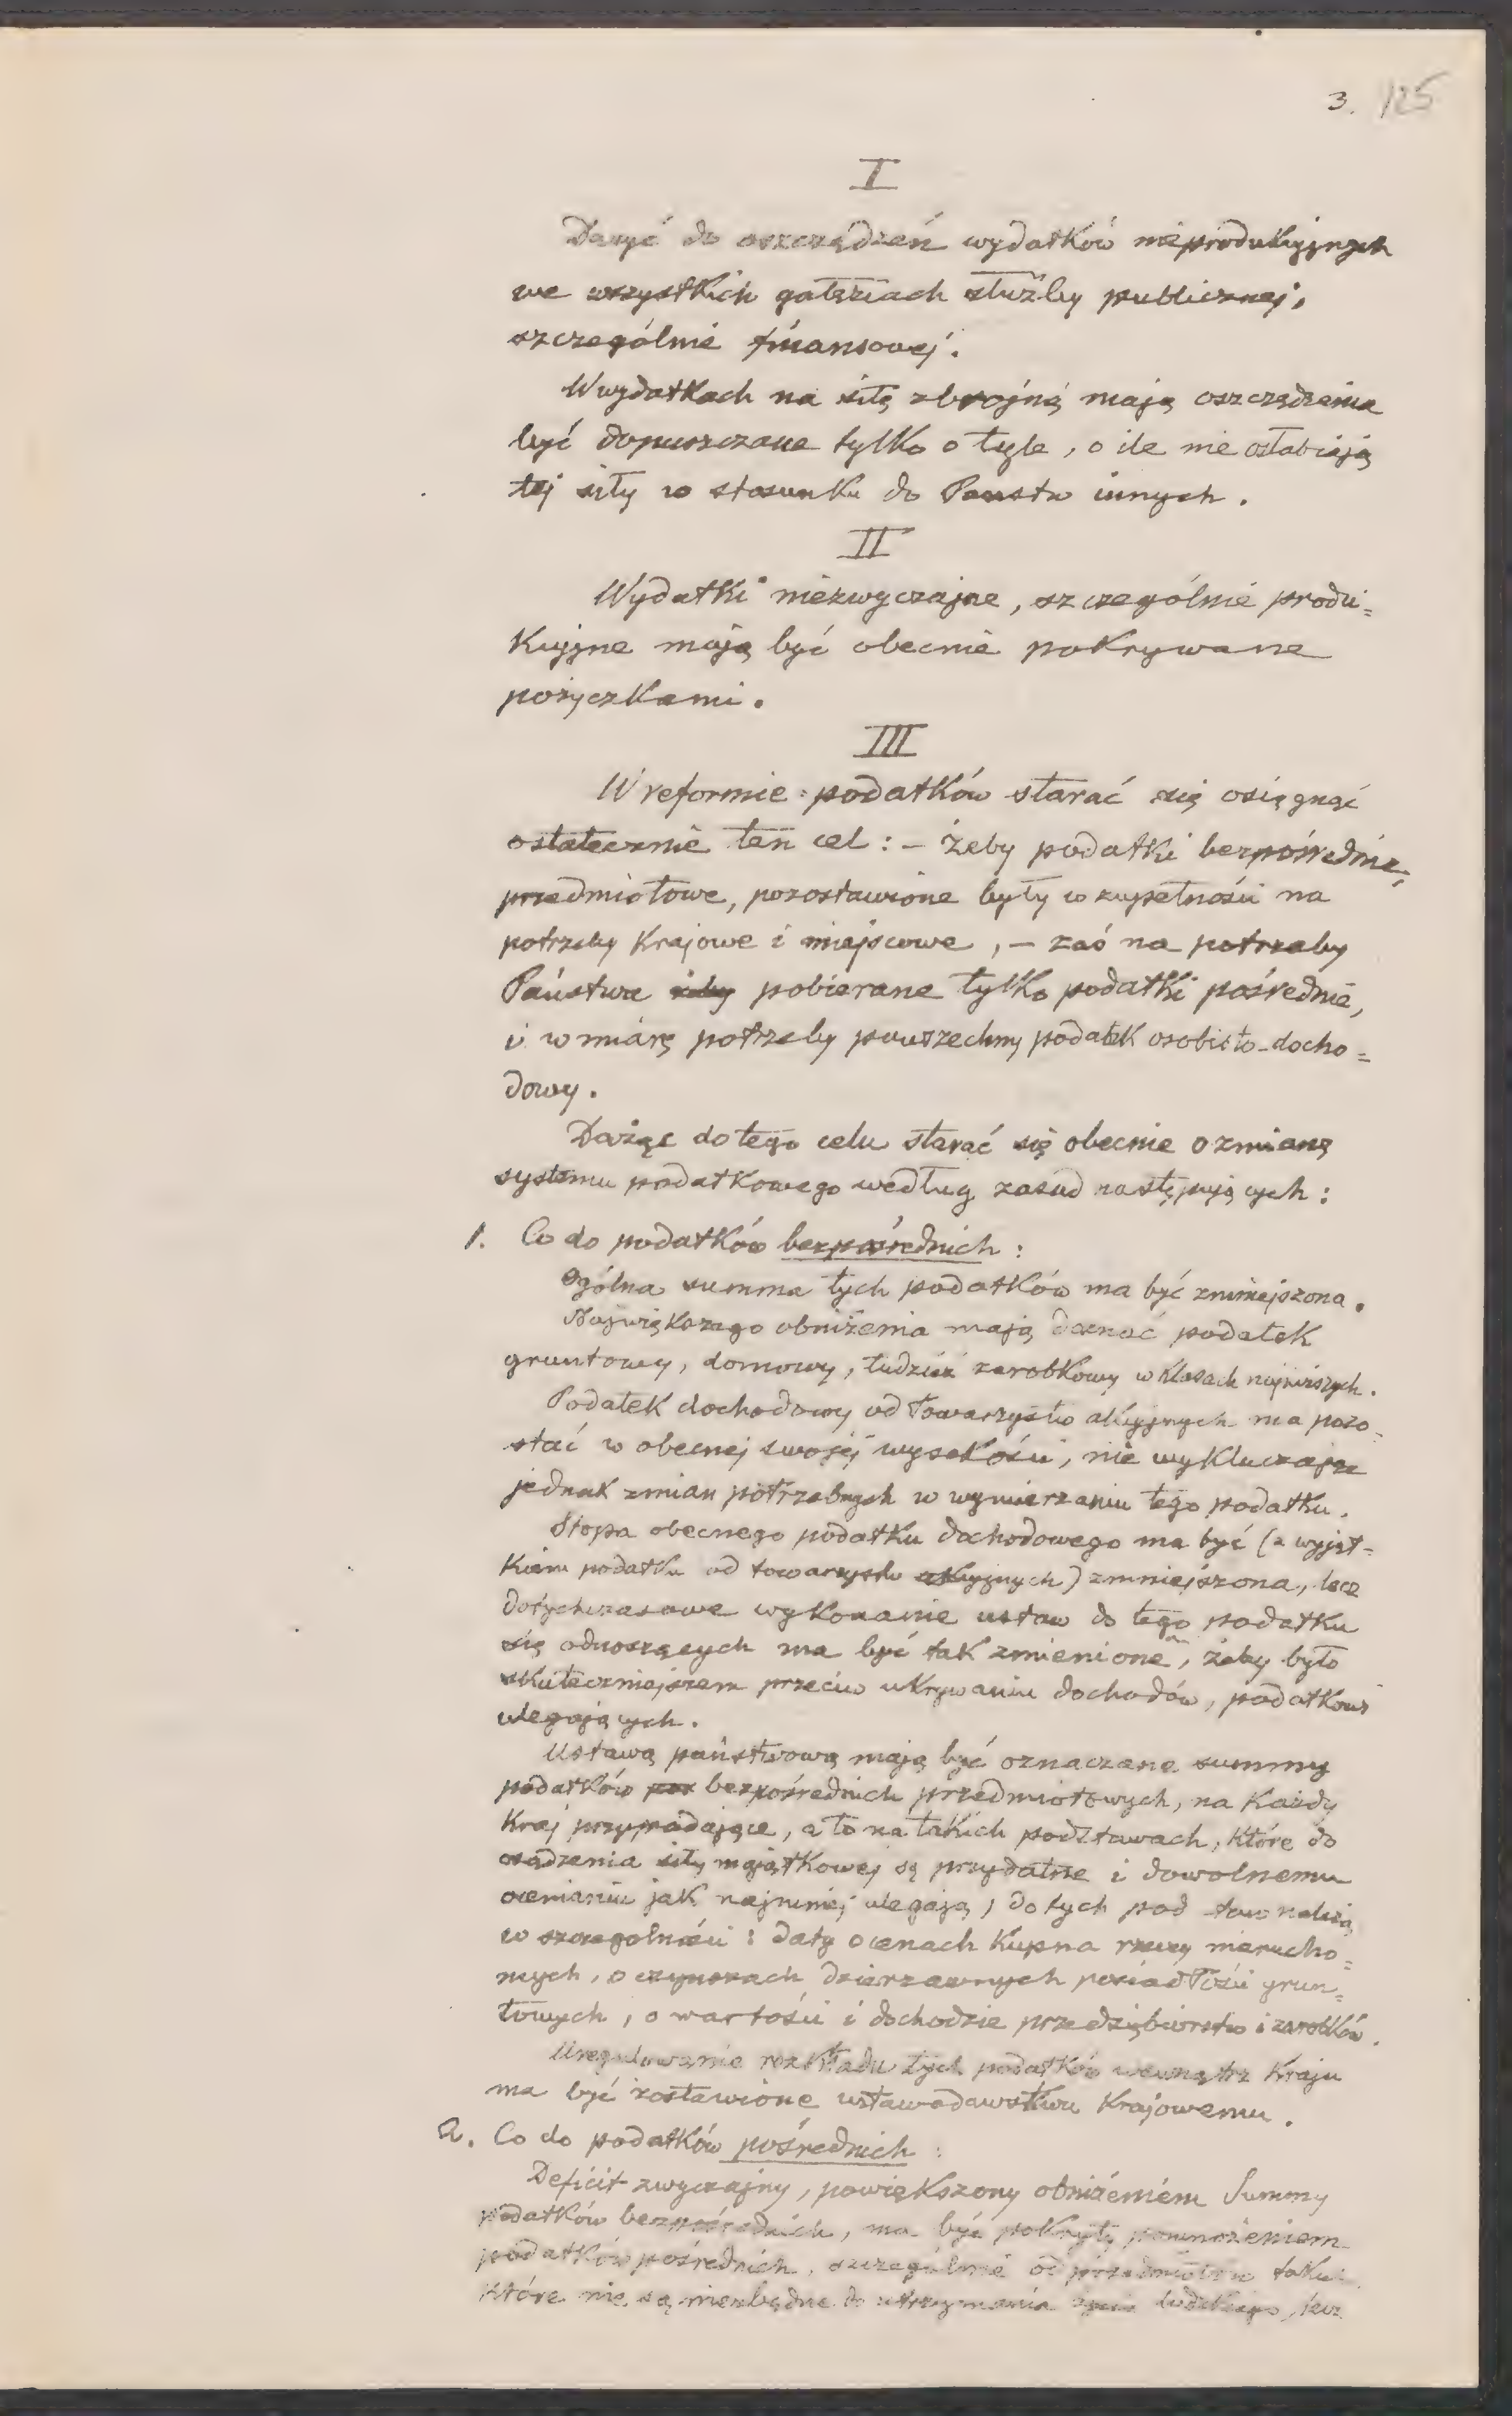 3. 125
I
Dążyć do oszczędzeń wydatków nieprodukcyjnych
we wszystkich gałęziach służby publicznej,
szczególnie finansowej.
W wydatkach na siłę zbrojną mają oszczędzenia
być dopuszczane tylko o tyle, o ile nie osłabiają
tej siły w stosunku do Państw innych.
II
Wydatki niezwyczajne, szczególnie produ=
kcyjne mają być obecnie pokrywane
pożyczkami.
III
W reformie podatków starać się osiągnąć
ostatecznie ten cel: – żeby podatki bezpośrednie,
przedmiotowe, pozostawione były w zupełności na
potrzeby Krajowe i miejscowe, – zaś na potrzeby
Państwa pobierane tylko podatki pośrednie,
i w miarę potrzeby powszechny podatek osobisto-docho=
dowy.
Dążąc do tego celu starać się obecnie o zmianę
systemu podatkowego według zasad następujących:
1. Co do podatków bezpośrednich:
Ogólna summa tych podatków ma być zmniejszona.
Największego obniżenia mają doznać podatek
gruntowy, domowy, tudzież zarobkowy w klasach najniższych.
Podatek dochodowy od towarzystw akcyjnych ma pozo=
stać w obecnej swojej wysokości, nie wykluczając
jednak zmian potrzebnych w wymierzaniu tego podatku.
Stopa obecnego podatku dochodowego ma być (z wyjąt=
kiem podatku od towarzystw akcyjnych) zmniejszona, lecz
dotychczasowe wykonanie ustaw do tego podatku
się odnoszących ma być tak zmienione, żeby było
skuteczniejszem przeciw ukrywaniu dochodów, podatkowi
ulegających.
Ustawą państwową mają być oznaczane summy
podatków bezpośrednich przedmiotowych, na Każdy
Kraj przypadające, a to na takich podstawach, które do
osądzenia siły majątkowej są przydatne i dowolnemu
ocenianiu jak najmniej ulegają; do tych podstaw należą
w szczególności: daty o cenach Kupna rzeczy nierucho=
mych, o czynszach dzierżawnych posiadłości grun=
towych, o wartości i dochodzie przedsiębiorstw i zarobków.
Uregulowanie rozkładu tych podatków wewnątrz Kraju
ma być zostawione ustawodawstwu Krajowemu.
2. Co do podatków pośrednich:
Deficit zwyczajny, powiększony obniżeniem Summy
podatków bezpośrednich, ma być pokryty pomnożeniem
podatków pośrednich, szczególnie od przedmiotów
które nie są niezbędne do utrzymania życia ludzkiego, lecz